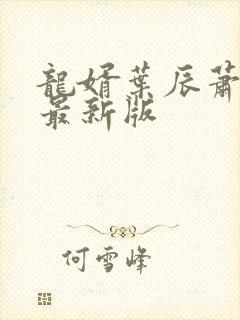 龍婿葉辰蕭
最新版
何雪峰